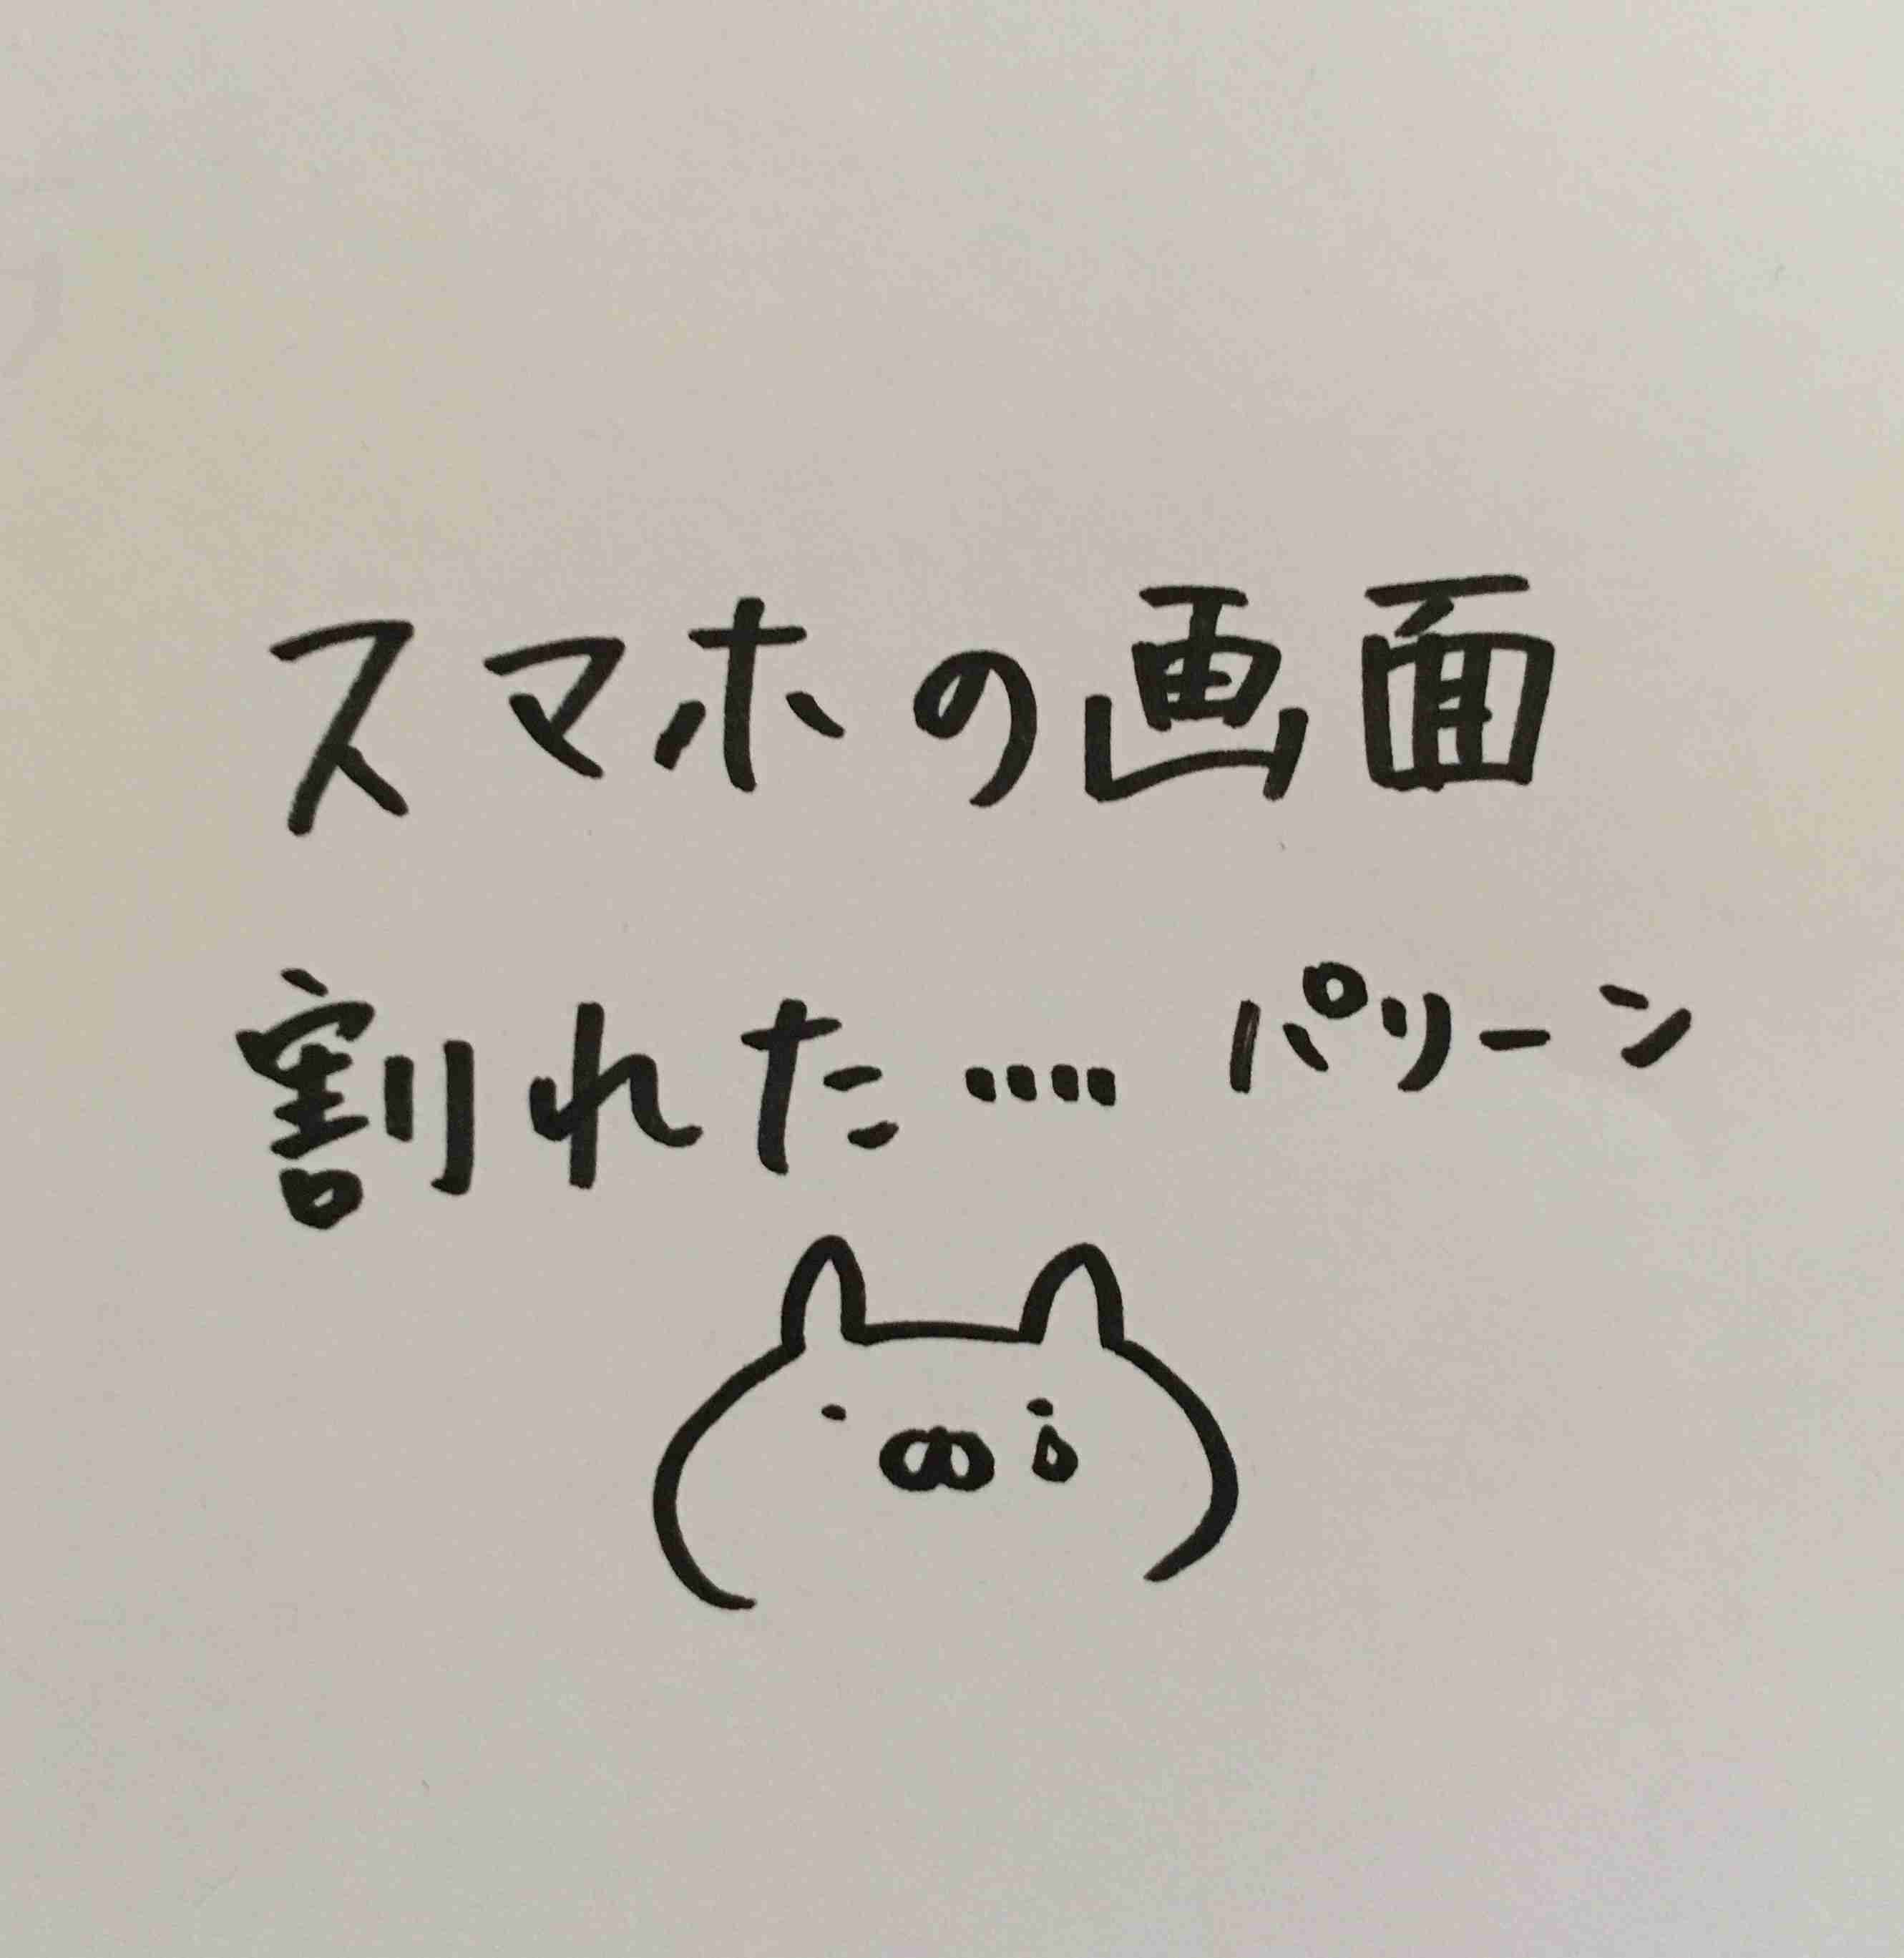 スマホの画面
割れた…. パリーン